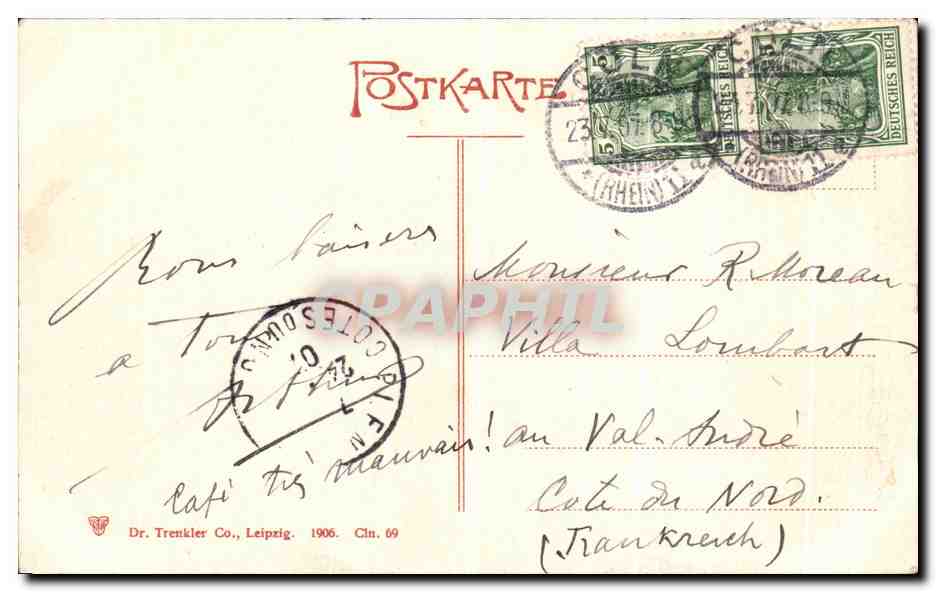 POSTKARTE
5
DEUTSCHES REICH
5
DEUTSCHES REICH
CÖLN
23.7.07. 8-9
*(RHEIN) 1 a
CÖLN
(RHEIN) 1 a
Bons baisers
a Tous
Café très mauvais!
Monsieur R. Moreau
Villa Lombart
au Val-André
Cote du Nord.
(Frankreich)
COTES DU NORD
24
7
APAPHIL
Dr. Trenkler Co., Leipzig. 1906. Cln. 69